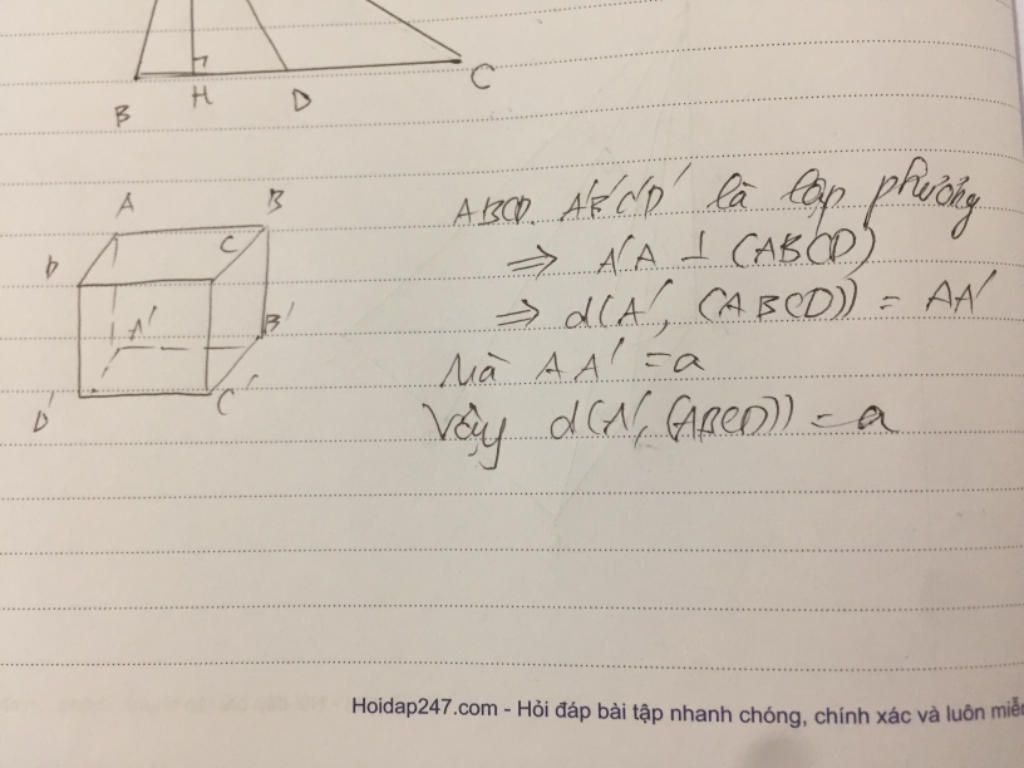 B H D C
A B
D C
A' B'
D' C'
ABCD. A'B'C'D' là lập phương
⇒ A'A ⊥ (ABCD)
⇒ d(A', (ABCD)) = AA'
Mà AA' = a
Vậy d(A', (ABCD)) = a
Hoidap247.com - Hỏi đáp bài tập nhanh chóng, chính xác và luôn miễ